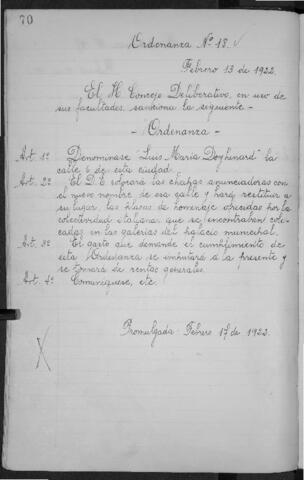 70
Ordenanza Nº 18.
Febrero 13 de 1922.
El H. Concejo Deliberativo, en uso de
sus facultades, sanciona la siguiente -
- Ordenanza -
Art. 1º Denominase "Luis Maria Doyhinard" la
calle 6 de esta ciudad.
Art. 2º El D. E. colocará las chapas anunciadoras con
el nuevo nombre de esa calle y hará restituir a
su lugar, las placas de homenaje ofrecidas por la
colectividad italiana que se encontraban colo-
cadas en las galerías del palacio municipal.
Art. 3º El gasto que demande el cumplimiento de
esta Ordenanza se imputará a la presente y
se tomará de rentas generales.
Art. 4º Comuníquese, etc.
Promulgada: Febrero 17 de 1922.